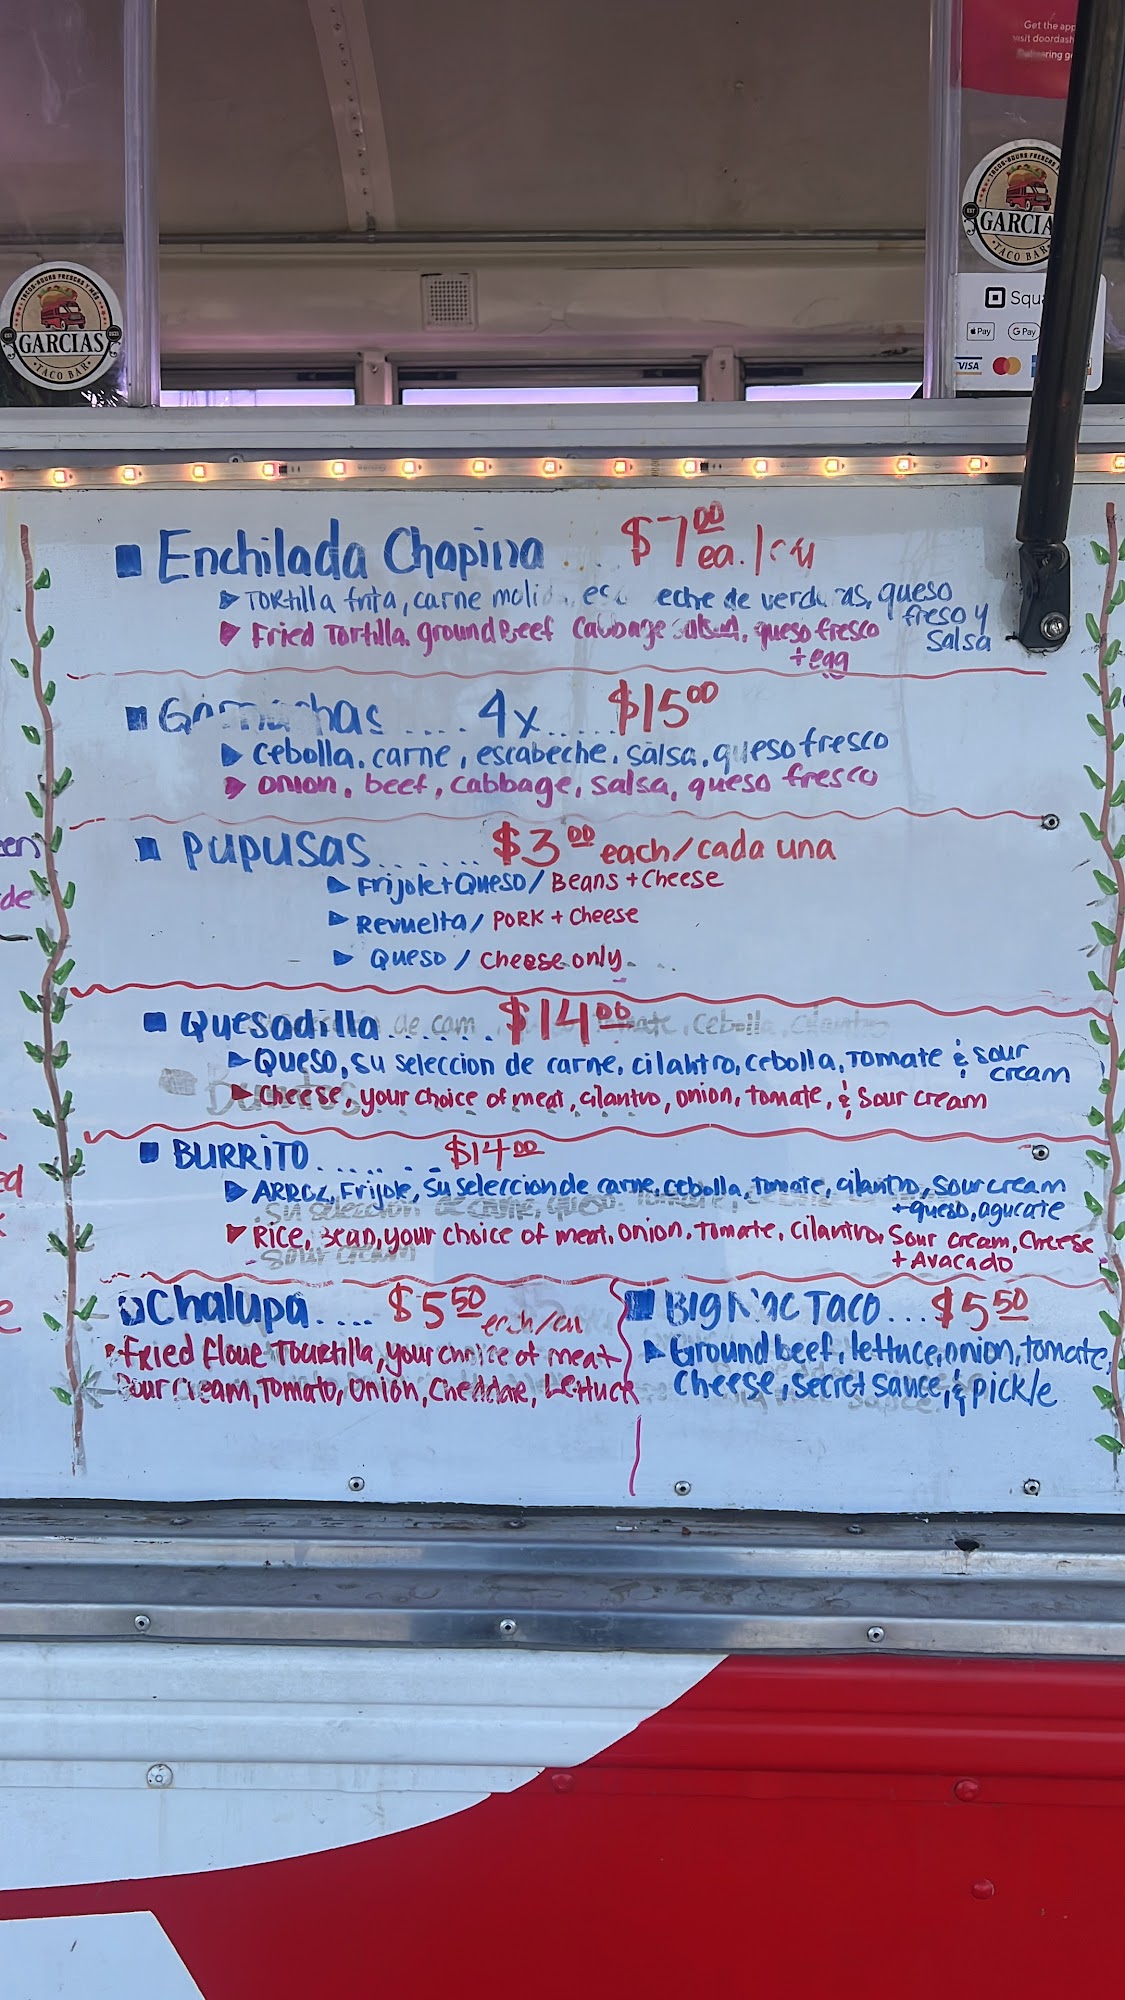 Get the app
visit doordash
GARCIA
TACO BAR
Squ
Pay
G Pay
VISA
TACOS-AGUAS FRESCAS Y MÁS
GARCIAS
TACO BAR
Enchilada Chapina .... $7.00 ea./cu
Tortilla frita, carne molida, eche de verduras, queso
freso y
salsa
Fried Tortilla. ground Beef Cabbage salsa, queso fresco
+ egg
.... 4x ..... $15.00
Cebolla, carne, escabeche, salsa, queso fresco
onion, beef, cabbage, salsa, queso fresco
Pupusas ....... $3.00 each/cada una
Frijole + Queso / Beans + Cheese
Revuelta / PORK + Cheese
Queso / Cheese only
Quesadilla ....... $14.00
Queso, su seleccion de carne, cilantro, cebolla, Tomate & sour
cream
Cheese, your choice of meat, cilantro, onion, tomate, & Sour cream
BURRITO ........ $14.00
ARROZ, Frijole, su seleccion de carne, cebolla, tomate, cilantro, sour cream
+queso, agucate
Rice, Bean, your choice of meat, onion, Tomate, Cilantro, Sour cream, Cheese
+ Avacado
Chalupa.... $5.50 each/cu
Fried floue Tourtilla, your choice of meat
Sour Cream, Tomato, Onion, Cheddar, Lettuce
Big Mac Taco... $5.50
Ground beef, lettuce, onion, tomate,
Cheese, secret sauce, & pickle